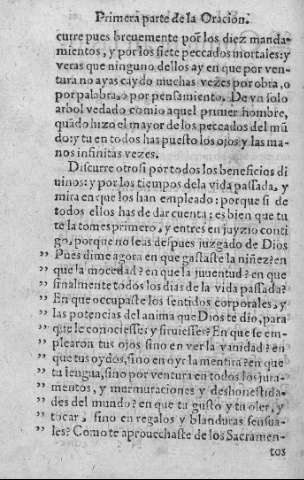 Primera parte de la Oracion.
curre pues breuemente por los diez manda-
mientos, y por los siete peccados mortales: y
veras que ninguno dellos ay en que por ven-
tura no ayas caydo muchas vezes por obra, o
por palabra, o por pensamiento. De vn solo
arbol vedado comio aquel primer hombre,
quãdo hizo el mayor de los peccados del mũ
do: y tu en todos has puesto los ojos y las ma-
nos infinitas vezes.
Discurre otrosi por todos los beneficios di
uinos: y por los tiempos dela vida passada, y
mira en que los han empleado: porque si de
todos ellos has de dar cuenta: es bien que tu
te la tomes primero, y entres en juyzio conti
go, porque no seas despues juzgado de Dios
" Pues dime agora en que gastaste la niñez? en
" que la mocedad? en que la juuentud? en que
" finalmente todos los dias de la vida passada?
" En que occupaste los sentidos corporales, y
" las potencias del anima que Dios te dio, para
" que le conociesses y siruiesses? En que se em-
" plearon tus ojos sino en ver la vanidad? en
" que tus oydos, sino en oyr la mentira? en que
" tu lengua, sino por ventura en todos los jura-
" mentos, y murmuraciones y deshonestida-
" des del mundo? en que tu gusto y tu oler, y
" tocar, sino en regalos y blanduras sensua-
" les? Como te aprouechaste de los Sacramen-
tos